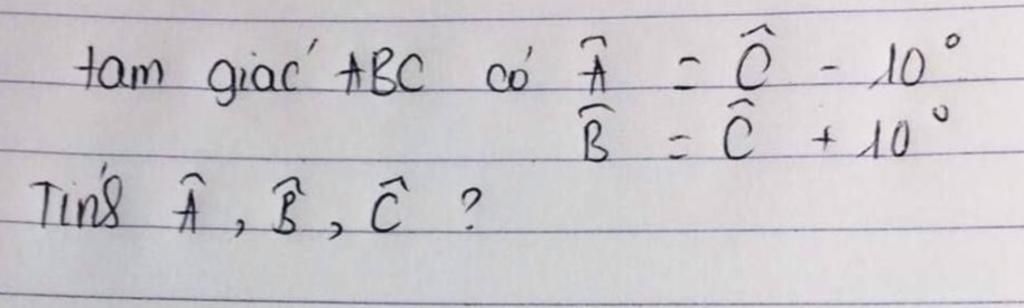 tam giác ABC có Â = Ĉ - 10°
B̂ = Ĉ + 10°
Tính Â, B̂, Ĉ ?